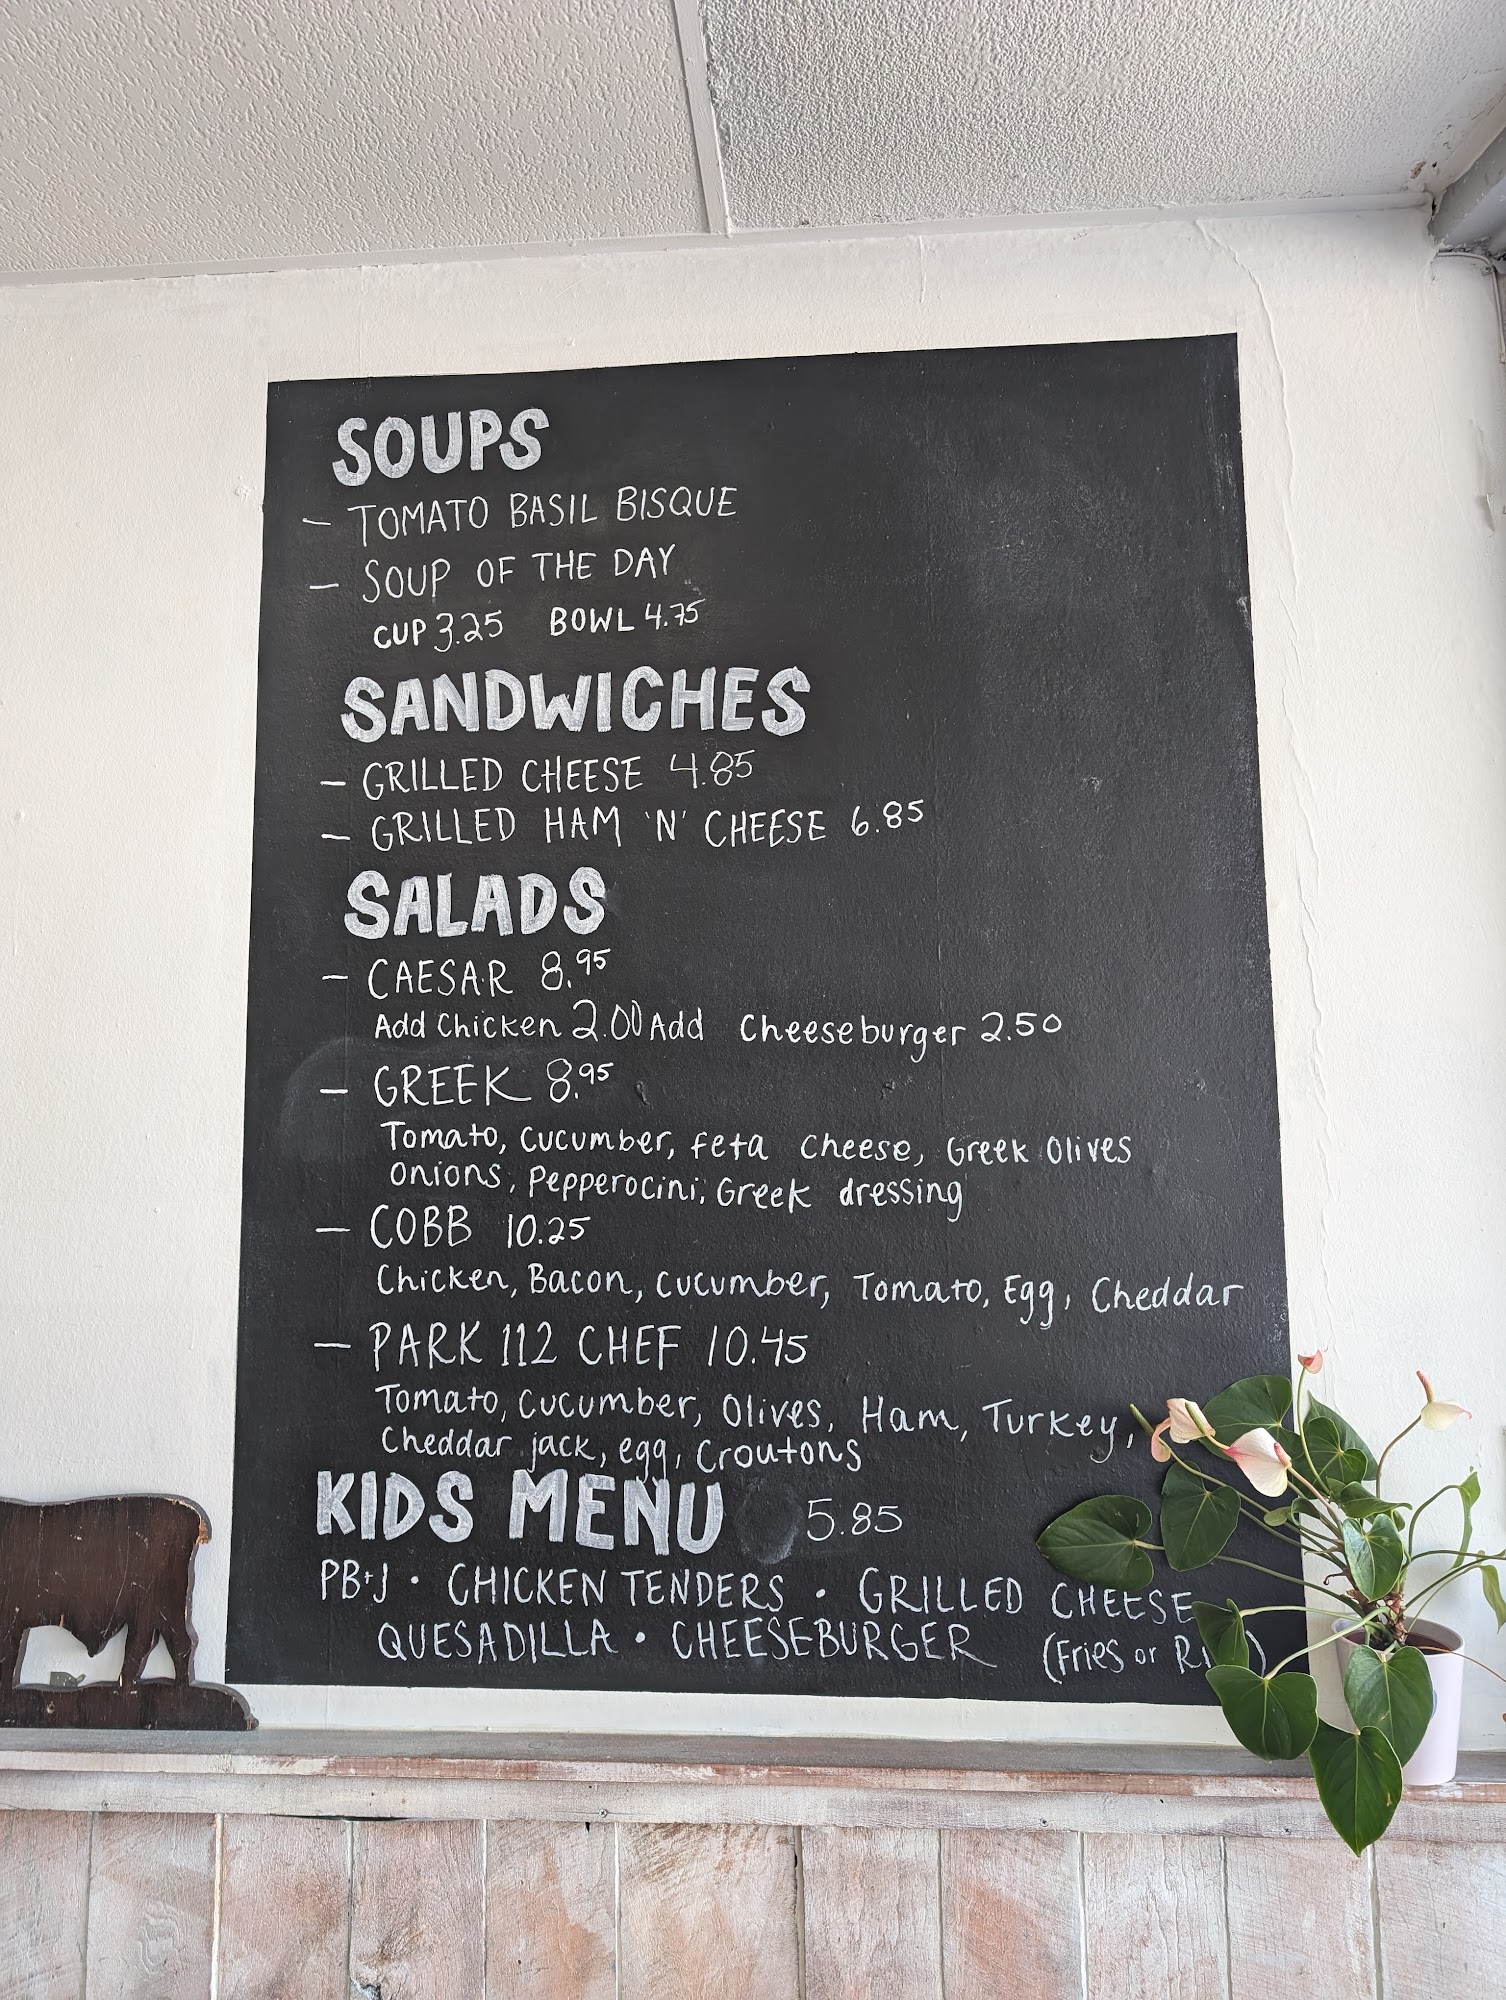 SOUPS
- TOMATO BASIL BISQUE
- SOUP OF THE DAY
CUP 3.25 BOWL 4.75
SANDWICHES
- GRILLED CHEESE 4.85
- GRILLED HAM 'N' CHEESE 6.85
SALADS
- CAESAR 8.95
Add Chicken 2.00 Add Cheeseburger 2.50
- GREEK 8.95
Tomato, Cucumber, Feta Cheese, Greek Olives
Onions, Pepperocini, Greek dressing
- COBB 10.25
Chicken, Bacon, Cucumber, Tomato, Egg, Cheddar
- PARK 112 CHEF 10.45
Tomato, Cucumber, Olives, Ham, Turkey,
Cheddar jack, egg, Croutons
KIDS MENU 5.85
PB+J • CHICKEN TENDERS • GRILLED CHEESE
QUESADILLA • CHEESEBURGER (Fries or